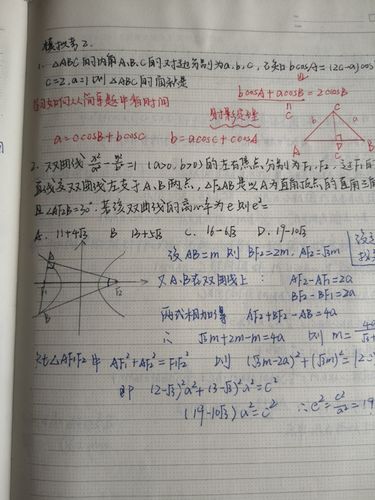 模拟卷2.
1. △ABC的内角A.B.C的对边分别为a.b.c, 已知bcosA=(2c-a)cos
c=2,a=1则△ABC的面积是
bcosA+acosB=2ccosB
节省时间从简单题中省时间
射影定理
C
C
b
a
A
D
B
c
a=ccosB+bcosC b=acosC+ccosA
2. 双曲线x²/a²-y²/b²=1(a>0,b>0)的左右焦点分别为F₁.F₂,过F₁
直线交双曲线左支于A.B两点,△F₂AB是以A为直角顶点的直角三角
且∠AF₂B=30°.若该双曲线的离心率为e则e²=
A. 11+4√3 B 13+5√3 C. 16-6√3 D. 19-10√3
设AB=m 则BF₂=2m, AF₂=√3m
又A.B在双曲线上: AF₂-AF₁=2a
BF₂-BF₁=2a
A
F₁
F₂
B
两式相加得 AF₂+BF₂-AB=4a
∴ √3m+2m-m=4a 则 m=
Rt△AF₁F₂中 AF₁²+AF₂²=F₁F₂² 则 (√3m-2a)²+(√3m)²=
即 (2-√3)²a²+(3-√3)²a²=c²
(19-10√3)a²=c² ∴e²=c²/a²=19-10